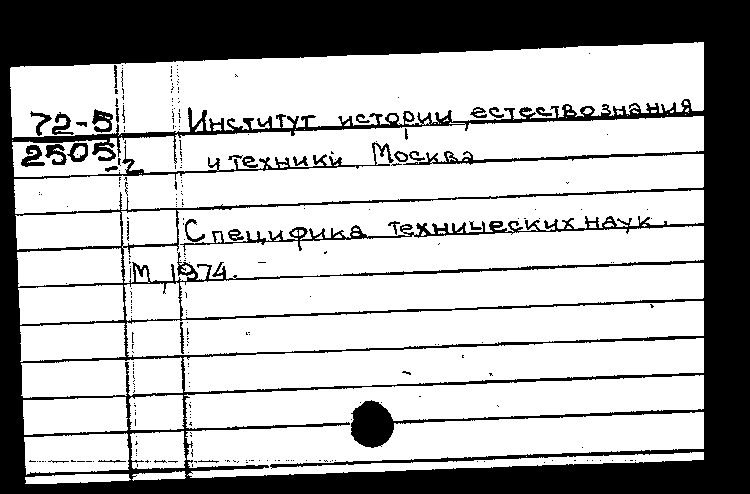 72-5 Институт истории, естествознания
2505-2 и техники. Москва
Специфика технических наук.
М., 1974.